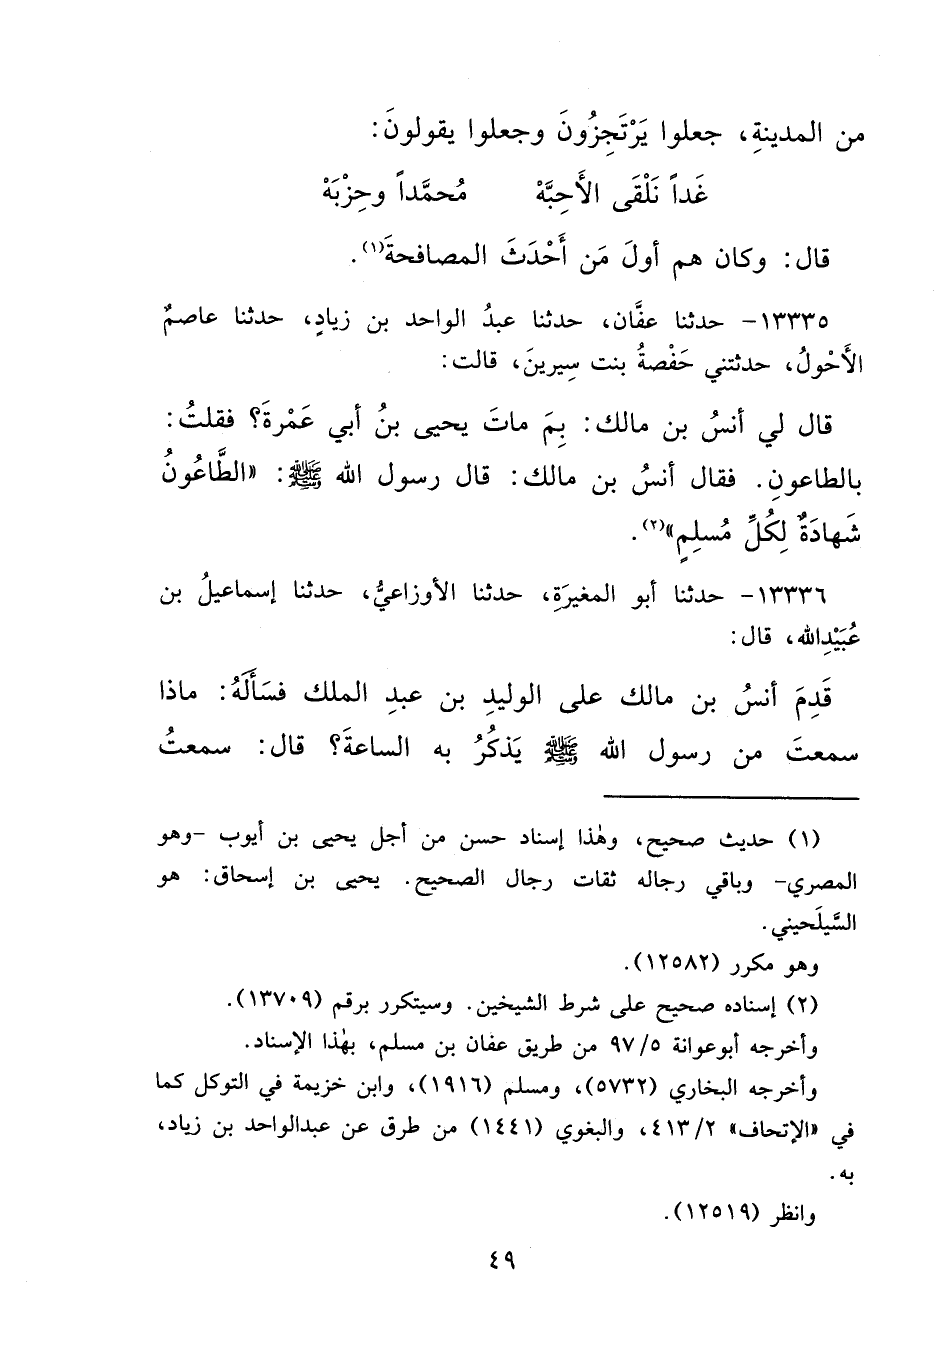 من المدينةِ، جعلوا يَرْتَجِزُونَ وجعلوا يقولونَ:
غَداً نَلْقَى الأَحِبَّهْ مُحمَّداً وحِزْبَهْ
قال: وكان هم أولَ مَن أَحْدَثَ المصافحةَ(١).
١٣٣٣٥- حدثنا عفَّان، حدثنا عبدُ الواحد بن زيادٍ، حدثنا عاصمٌ
الأَحْولُ، حدثتني حَفْصةُ بنت سِيرينَ، قالت:
قال لي أنسُ بن مالك: بِمَ ماتَ يحيى بنُ أبي عَمْرةَ؟ فقلتُ:
بالطاعونِ. فقال أنسُ بن مالك: قال رسول الله ﷺ: «الطَّاعُونُ
شَهادَةٌ لِكُلِّ مُسلِمٍ»(٢).
١٣٣٣٦- حدثنا أبو المغيرَةِ، حدثنا الأوزاعيُّ، حدثنا إسماعيلُ بن
عُبَيْدِالله، قال:
قَدِمَ أنسُ بن مالك على الوليدِ بن عبدِ الملك فسَأَلَهُ: ماذا
سمعتَ من رسول الله ﷺ يَذكُرُ به الساعةَ؟ قال: سمعتُ
(١) حديث صحيح، وهٰذا إسناد حسن من أجل يحيى بن أيوب -وهو
المصري- وباقي رجاله ثقات رجال الصحيح. يحيى بن إسحاق: هو
السَّيلَحيني.
وهو مكرر (١٢٥٨٢).
(٢) إسناده صحيح على شرط الشيخين. وسيتكرر برقم (١٣٧٠٩).
وأخرجه أبوعوانة ٩٧/٥ من طريق عفان بن مسلم، بهٰذا الإسناد.
وأخرجه البخاري (٥٧٣٢)، ومسلم (١٩١٦)، وابن خزيمة في التوكل كما
في «الإتحاف» ٤١٣/٢، والبغوي (١٤٤١) من طرق عن عبدالواحد بن زياد،
به.
وانظر (١٢٥١٩).
٤٩